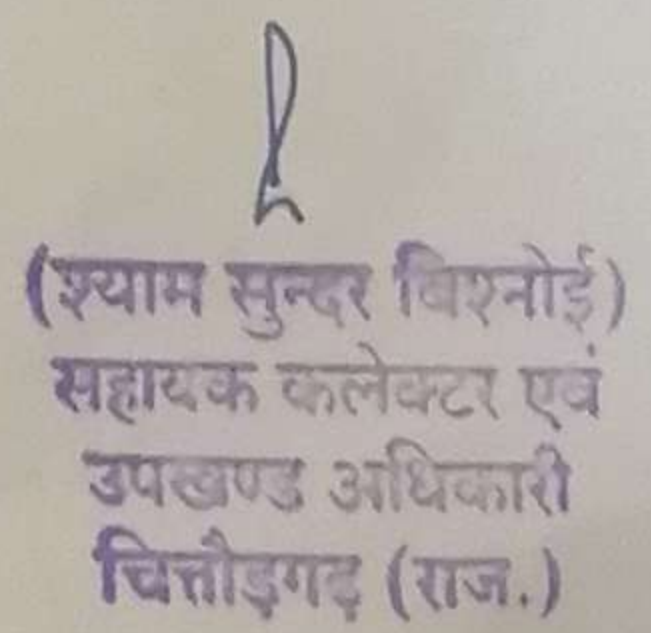 (श्याम सुन्दर बिश्नोई)
सहायक कलेक्टर एवं
उपखण्ड अधिकारी
चित्तौड़गढ़ (राज.)